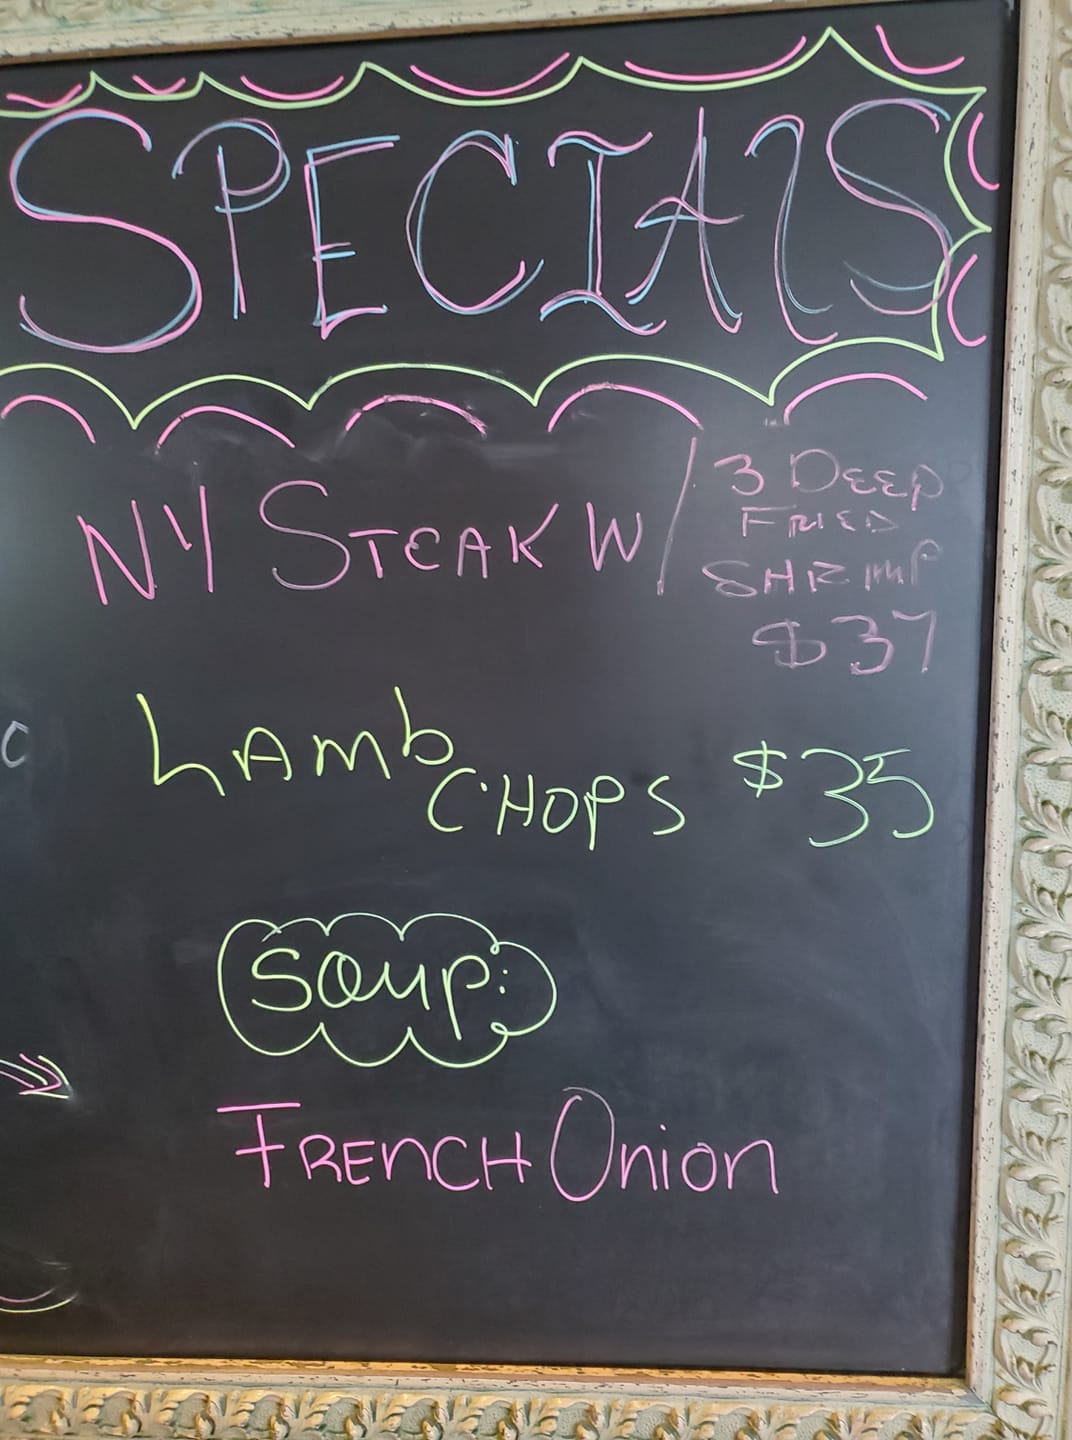 SPECIALS
NY STEAK W/ 3 DEEP
FRIED
SHRIMP
$37
LAMB
CHOPS $35
SOUP:
FRENCH ONION